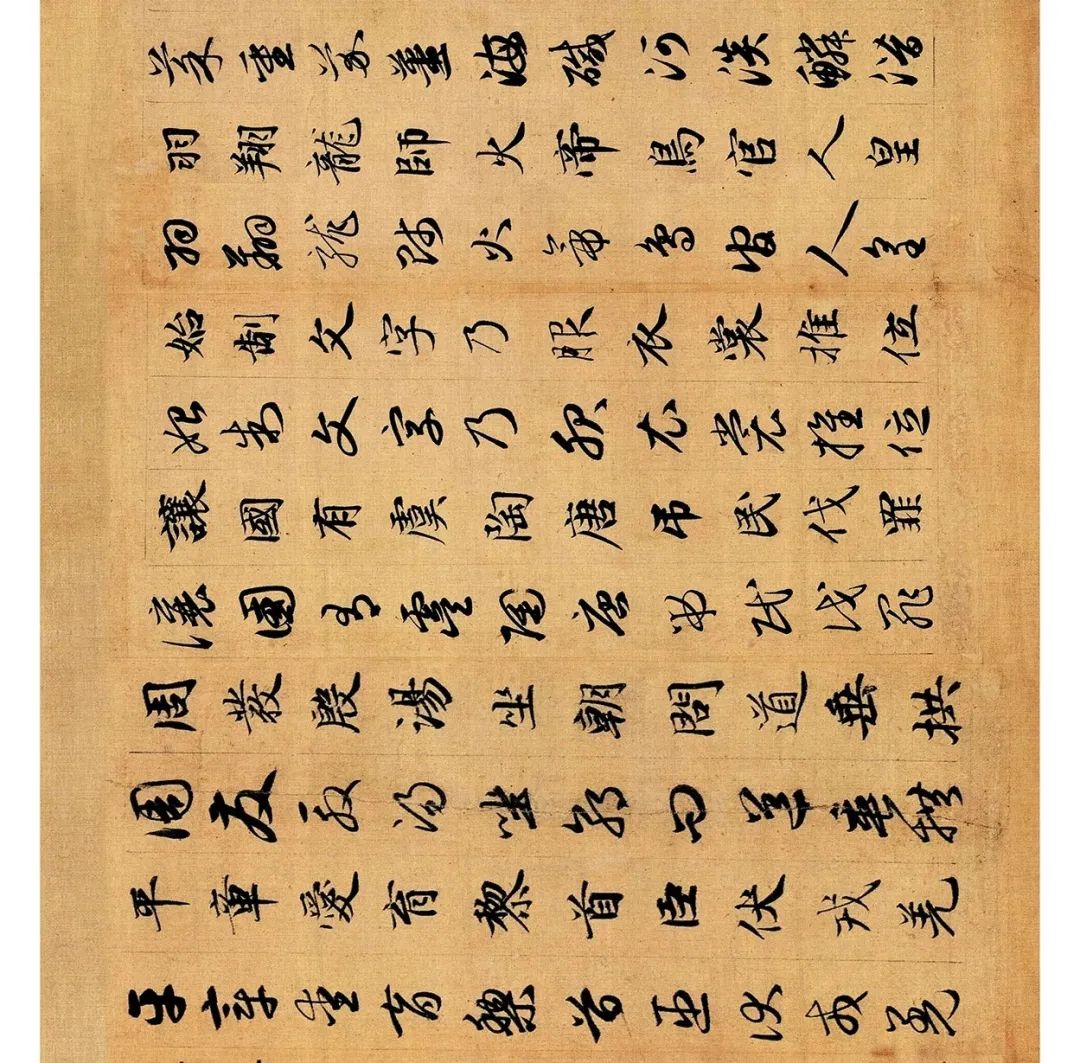 菜重芥薑海鹹河淡鱗潛
羽翔龍師火帝鳥官人皇
羽翔龍師火帝鳥官人皇
始制文字乃服衣裳推位
始制文字乃服衣裳推位
讓國有虞陶唐吊民伐罪
讓國有虞陶唐吊民伐罪
周發殷湯坐朝問道垂拱
周發殷湯坐朝問道垂拱
平章愛育黎首臣伏戎羌
平章愛育黎首臣伏戎羌